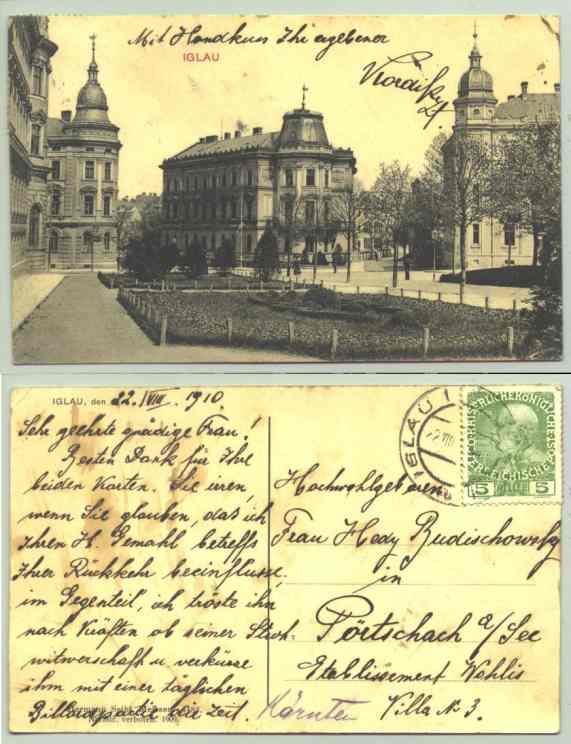 Mit Handkuss Ihr ergebener
IGLAU
IGLAU, den 22. VIII. 1910
Sehr geehrte gnädige Frau!
Besten Dank für Ihre
beiden Karten. Sie irren,
wenn Sie glauben, dass ich
Ihren H. Gemahl betreffs
Ihrer Rückkehr beeinflusse,
im Gegenteil, ich tröste ihn
nach Kräften ob seiner Stroh-
witwerschaft u verkürze
ihm mit einer täglichen
Billardpartie die Zeit.
verboten. 1909
IGLAU
22 VIII
5 5
Hochwohlgeboren
Frau Hedy Budischowsky
in
Pörtschach a/See
Etablissement Wahlis
Kärnten Villa No 3.